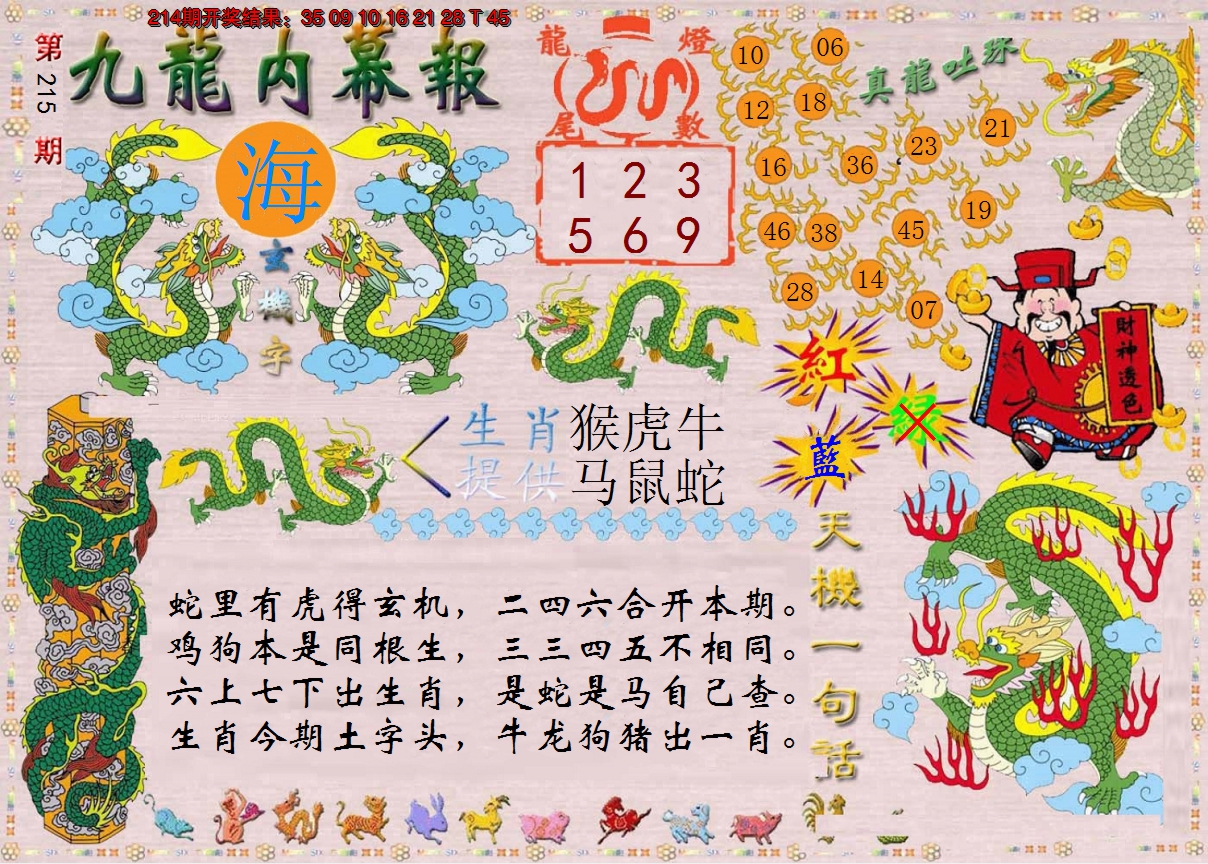 214期开奖结果：35 09 10 16 21 28 T 45
第215期
九龍内幕報
海
玄機字
龍燈尾數
1 2 3
5 6 9
真龍吐珠
10
06
12
18
16
36
23
21
46
38
45
19
28
14
07
紅
绿
藍
財神透色
生肖 猴虎牛
提供 马鼠蛇
天機一句話
蛇里有虎得玄机，二四六合开本期。
鸡狗本是同根生，三三四五不相同。
六上七下出生肖，是蛇是马自己查。
生肖今期土字头，牛龙狗猪出一肖。